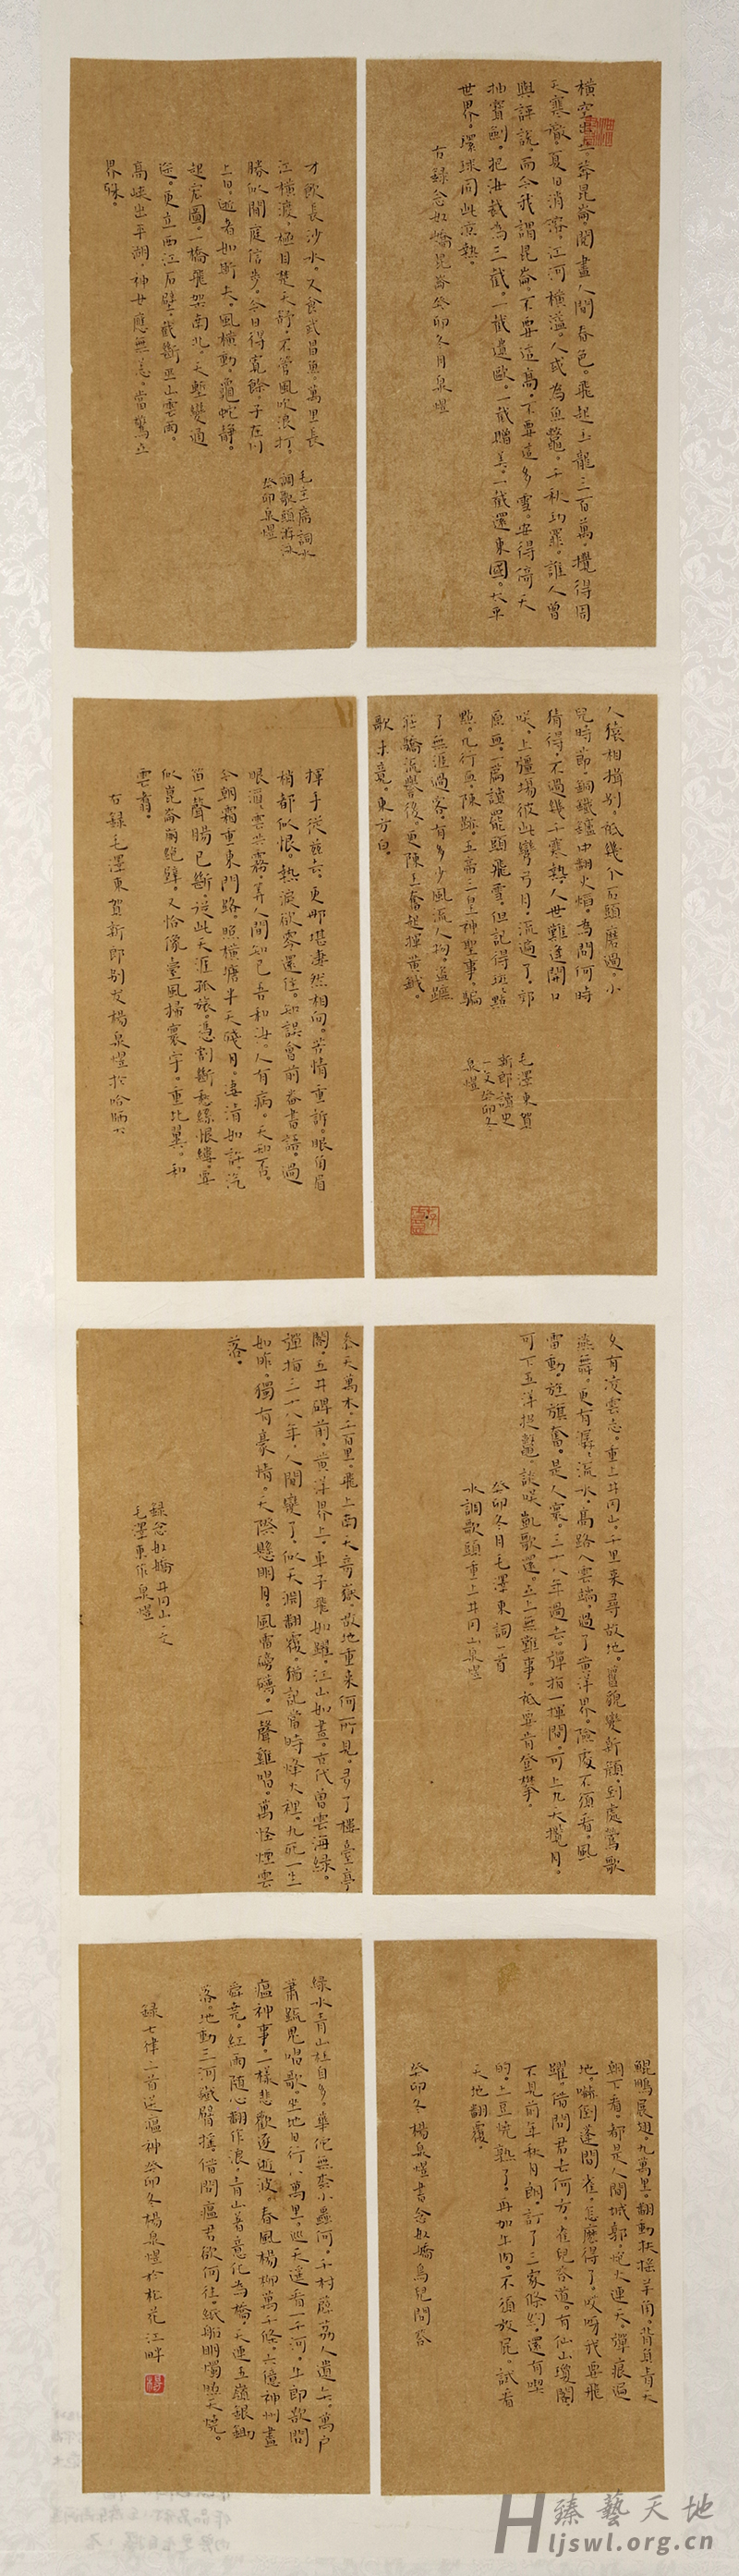 橫空出世莽昆崙閱盡人間春色。飛起玉龍三百萬。攪得周
天寒徹。夏日消溶。江河橫溢。人或為魚鱉。千秋功罪。誰人曾
與評說而今我謂昆崙。不要這高。不要這多雪。安得倚天
抽寶劍。把汝裁為三截。一截遺歐。一截贈美。一截還東國。太平
世界。環球同此涼熱。
右錄念奴嬌昆崙癸卯冬月泉愷
才飲長沙水。又食武昌魚。萬里長
江橫渡。極目楚天舒。不管風吹浪打。
勝似閒庭信步。今日得寬餘。子在川
上曰。逝者如斯夫。風檣動。龜蛇靜。
起宏圖。一橋飛架南北。天塹變通
途。更立西江石壁。截斷巫山雲雨。
高峽出平湖。神女應無恙。當驚立
界殊。
毛主席詞水
調歌頭游泳
癸卯泉愷
人猿相揖別。祇幾個石頭磨過。小
兒時節。銅鐵爐中翻火焰。為問何時
猜得。不過幾千寒熱。人世難逢開口
咲。上疆場彼此彎弓月。流遍了。郊
原血。一篇讀罷頭飛雪。但記得斑點
點。几行血。陳跡。五帝三皇神聖事。騙
了無涯過客。有多少風流人物。盜蹠
莊蹻流譽後。更陳王奮起揮黃鉞。
歌未竟。東方白。
毛澤東賀
新郎讀史
一文癸卯冬
泉愷
揮手從茲去。更那堪凄然相向。苦情重訴。眼角眉
梢都似恨。熱淚欲零還住。知誤會前番書語。過
眼滔雲共霧。算人間知己吾和汝。人有病。天知否。
今朝霜重東門路。照橫塘半天殘月。凄清如許。汽
笛一聲腸已斷。從此天涯孤旅。憑割斷愁絲恨縷。要
似崑崙崩絕壁。又恰像臺風掃寰宇。重比翼。和
雲翥。
右錄毛澤東賀新郎別友楊泉愷於哈師大
久有凌雲志。重上井岡山。千里來尋故地。舊貌變新顏。到處鶯歌
燕舞。更有潺潺流水。高路入雲端。過了黃洋界。險處不須看。風
雷動。旌旗奮。是人寰。三十八年過去。彈指一揮間。可上九天攬月。
可下五洋捉鱉。談咲凱歌還。世上無難事。祇要肯登攀。
癸卯冬月毛澤東詞一首
水調歌頭重上井岡山泉愷
參天萬木。千百里。飛上南天奇嶽。故地重來何所見。多了樓臺亭
閣。五井碑前。黃洋界上。車子飛如躍。江山如畫。古代曾雲海綠。
彈指三十八年。人間變了。似天淵翻覆。猶記當時烽火裡。九死一生
如昨。獨有豪情。天際懸明月。風雷磅礴。一聲雞唱。萬怪煙雲
落。
錄念奴嬌井岡山一文
毛澤東作泉愷
鯤鵬展翅。九萬里。翻動扶搖羊角。背負青天
朝下看。都是人間城郭。炮火連天。彈痕遍
地。嚇倒蓬間雀。怎麼得了。哎呀我要飛
躍。借問君去何方。雀兒答道。有仙山瓊閣。
不見前年秋月朗。訂了三家條約。還有喫
的。土豆燒熟了。再加牛肉。不須放屁。試看
天地翻覆。
癸卯冬楊泉愷書念奴嬌鳥兒問答
綠水青山枉自多。華佗無奈小蟲何。千村薜荔人遺矢。萬戶
蕭疏鬼唱歌。坐地日行八萬里。巡天遙看一千河。牛郎欲問
瘟神事。一樣悲歡逐逝波。春風楊柳萬千條。六億神州盡
舜堯。紅雨隨心翻作浪。青山著意化為橋。天連五嶺銀鋤
落。地動三河鐵臂搖。借問瘟君欲何往。紙船明燭照天燒。
錄七律二首送瘟神癸卯冬楊泉愷於松花江畔
臻藝天地
Hljswl.org.cn